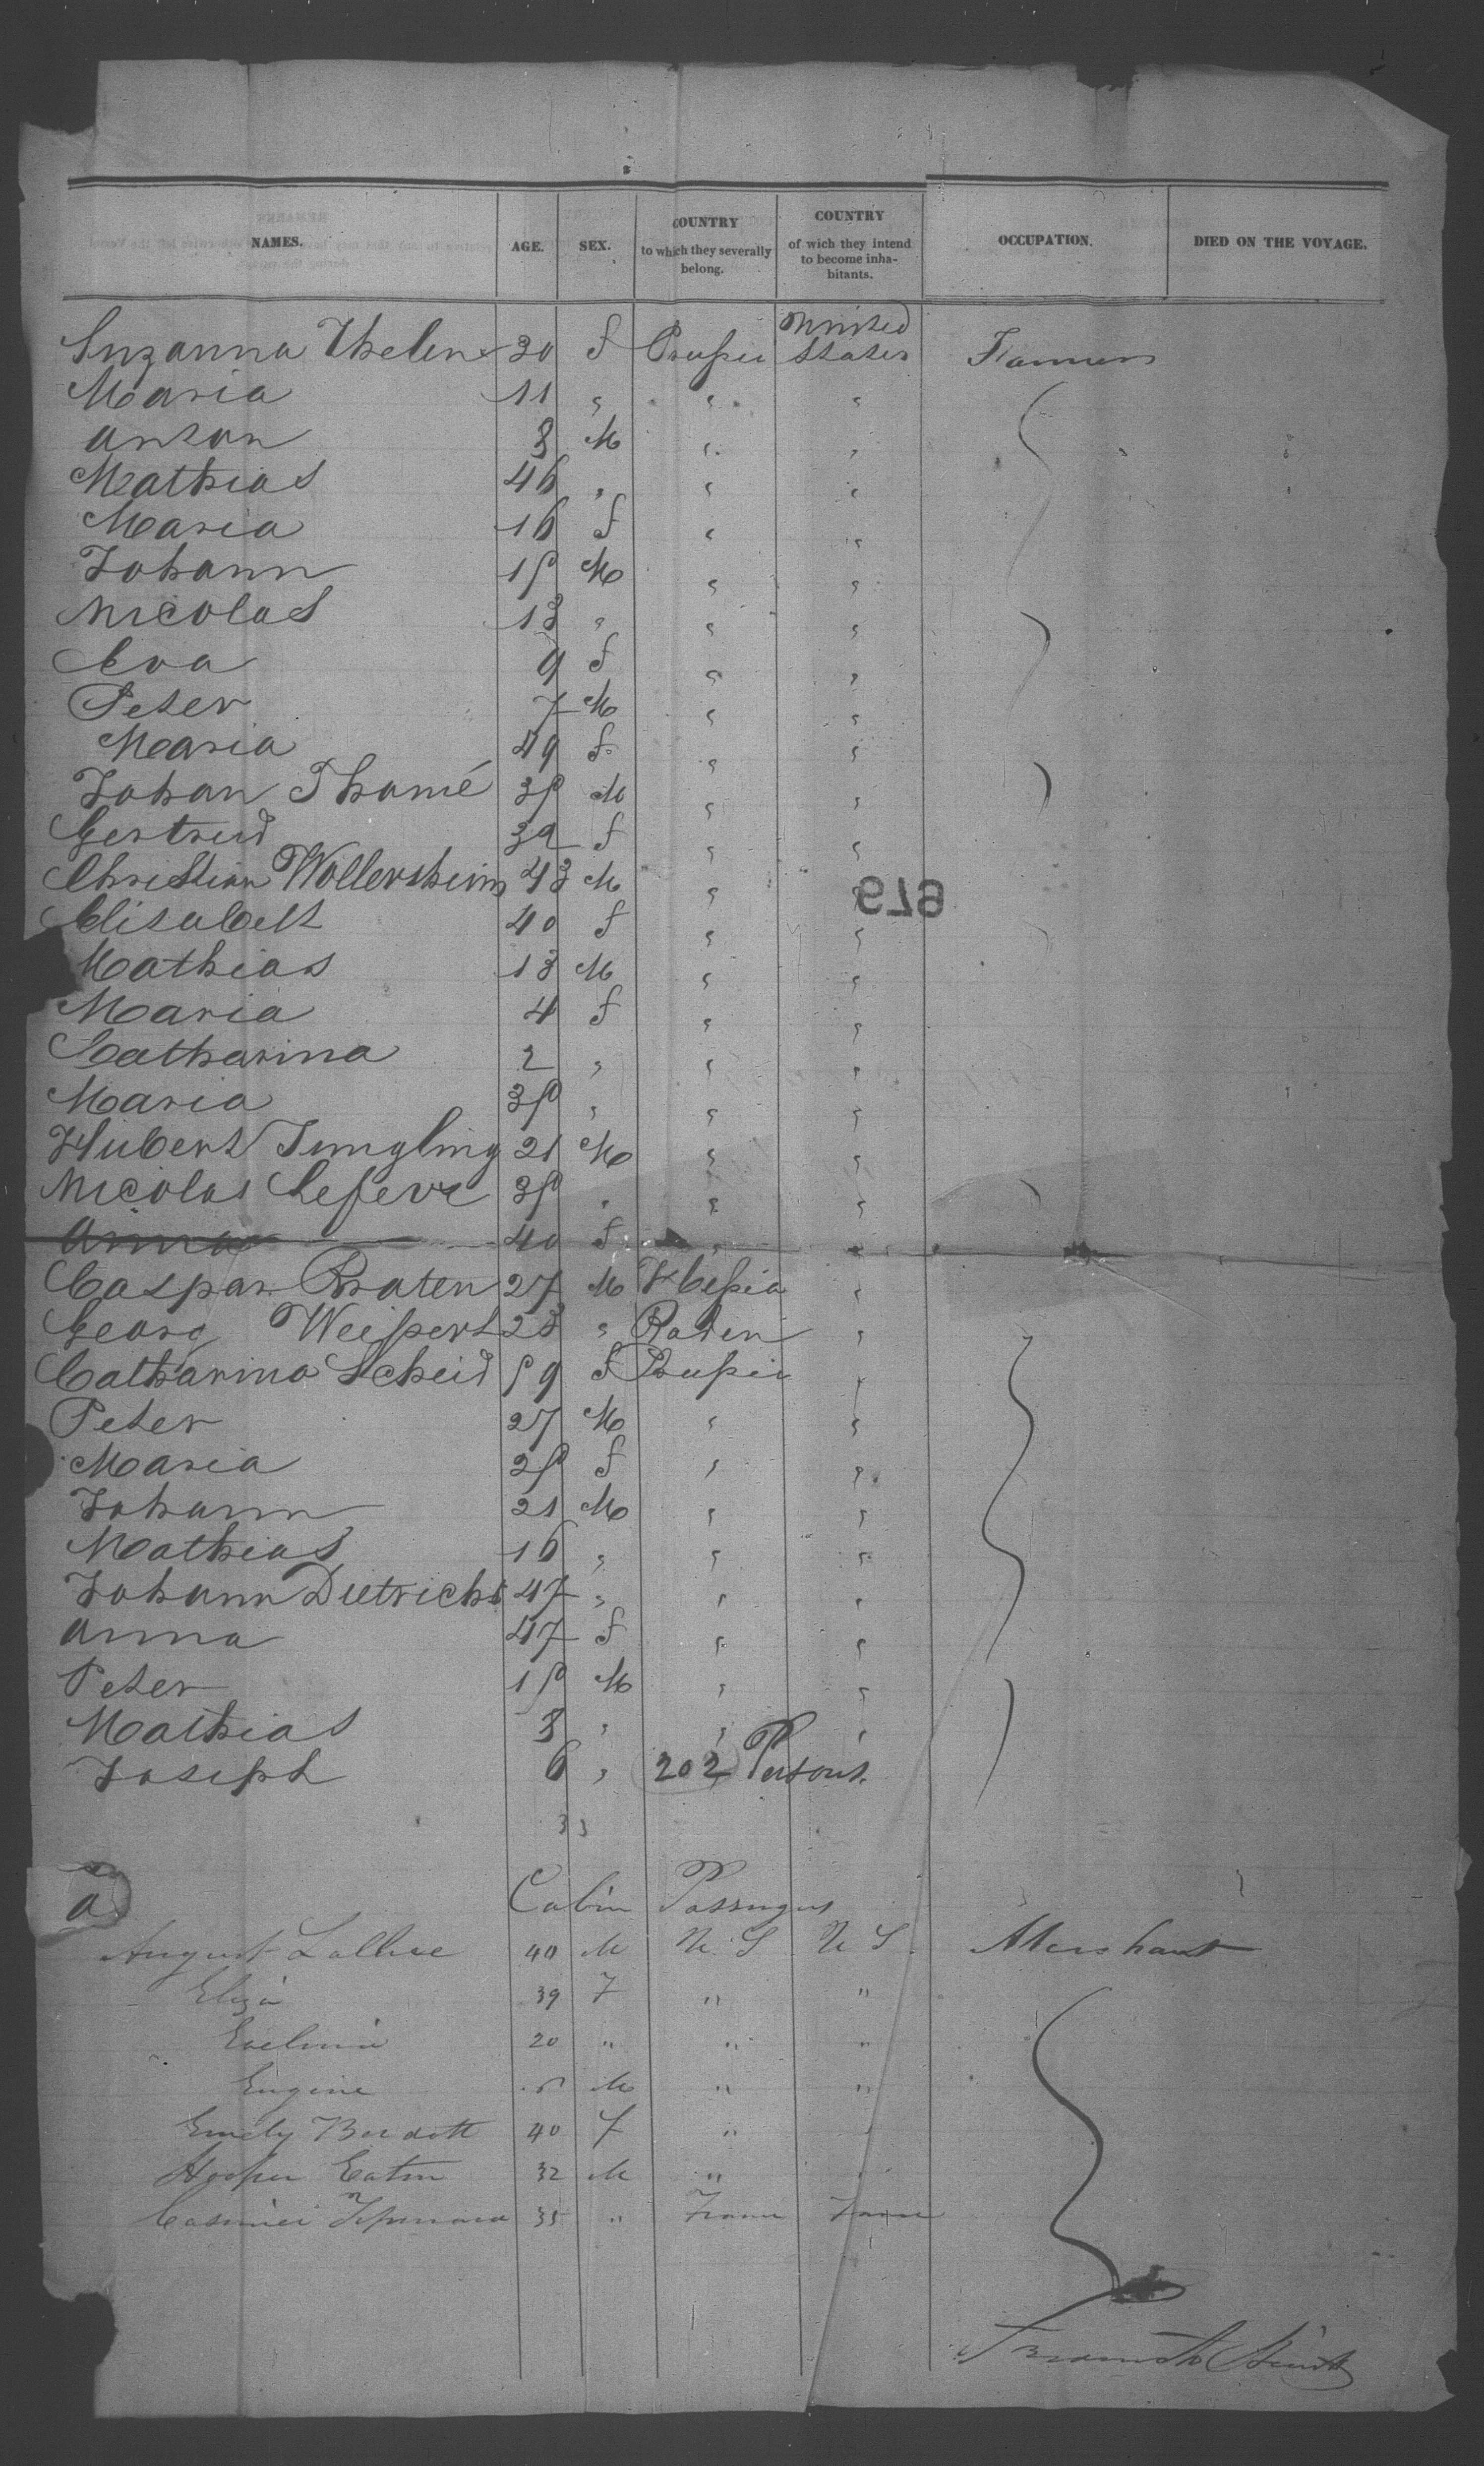 NAMES. AGE. SEX. COUNTRY to which they severally belong. COUNTRY of wich they intend to become inhabitants. OCCUPATION. DIED ON THE VOYAGE.
Suzanna Thelen 30 f Prussia United States Farmers
Maria 11 " " "
Anton 8 M " "
Mathias 46 " " "
Maria 16 f " "
Johann 15 M " "
Nicolas 13 " " "
Eva 9 f " "
Peter 7 M " "
Maria 49 f " "
Johan Thomé 35 M " "
Gertrud 39 f " "
Christian Wollersheim 43 M " "
679
Elisabeth 40 f " "
Mathias 13 M " "
Maria 4 f " "
Catharina 2 " " "
Maria 35 " " "
Hubert Jungling 21 M " "
Nicolas Lefevre 35 " " "
Anna 40 f " "
Caspar Braten 27 M Hessia "
Georg Weissert 28 " Baden "
Catharina Scheid 59 f Prussia "
Peter 27 M " "
Maria 25 f " "
Johann 21 M " "
Mathias 16 " " "
Johann Dietrichs 47 " " "
Anna 47 f " "
Peter 15 M " "
Mathias 8 " " "
Joseph 6 " 202 Persons.
33
Cabin Passengers
a
August 40 M U. S U S Merchant
Eliza 39 F " "
Evelina 20 " " "
Eugine M " "
Emily Burdett 40 F "
Hooper Eaton 32 M "
Casimir 35 " France France